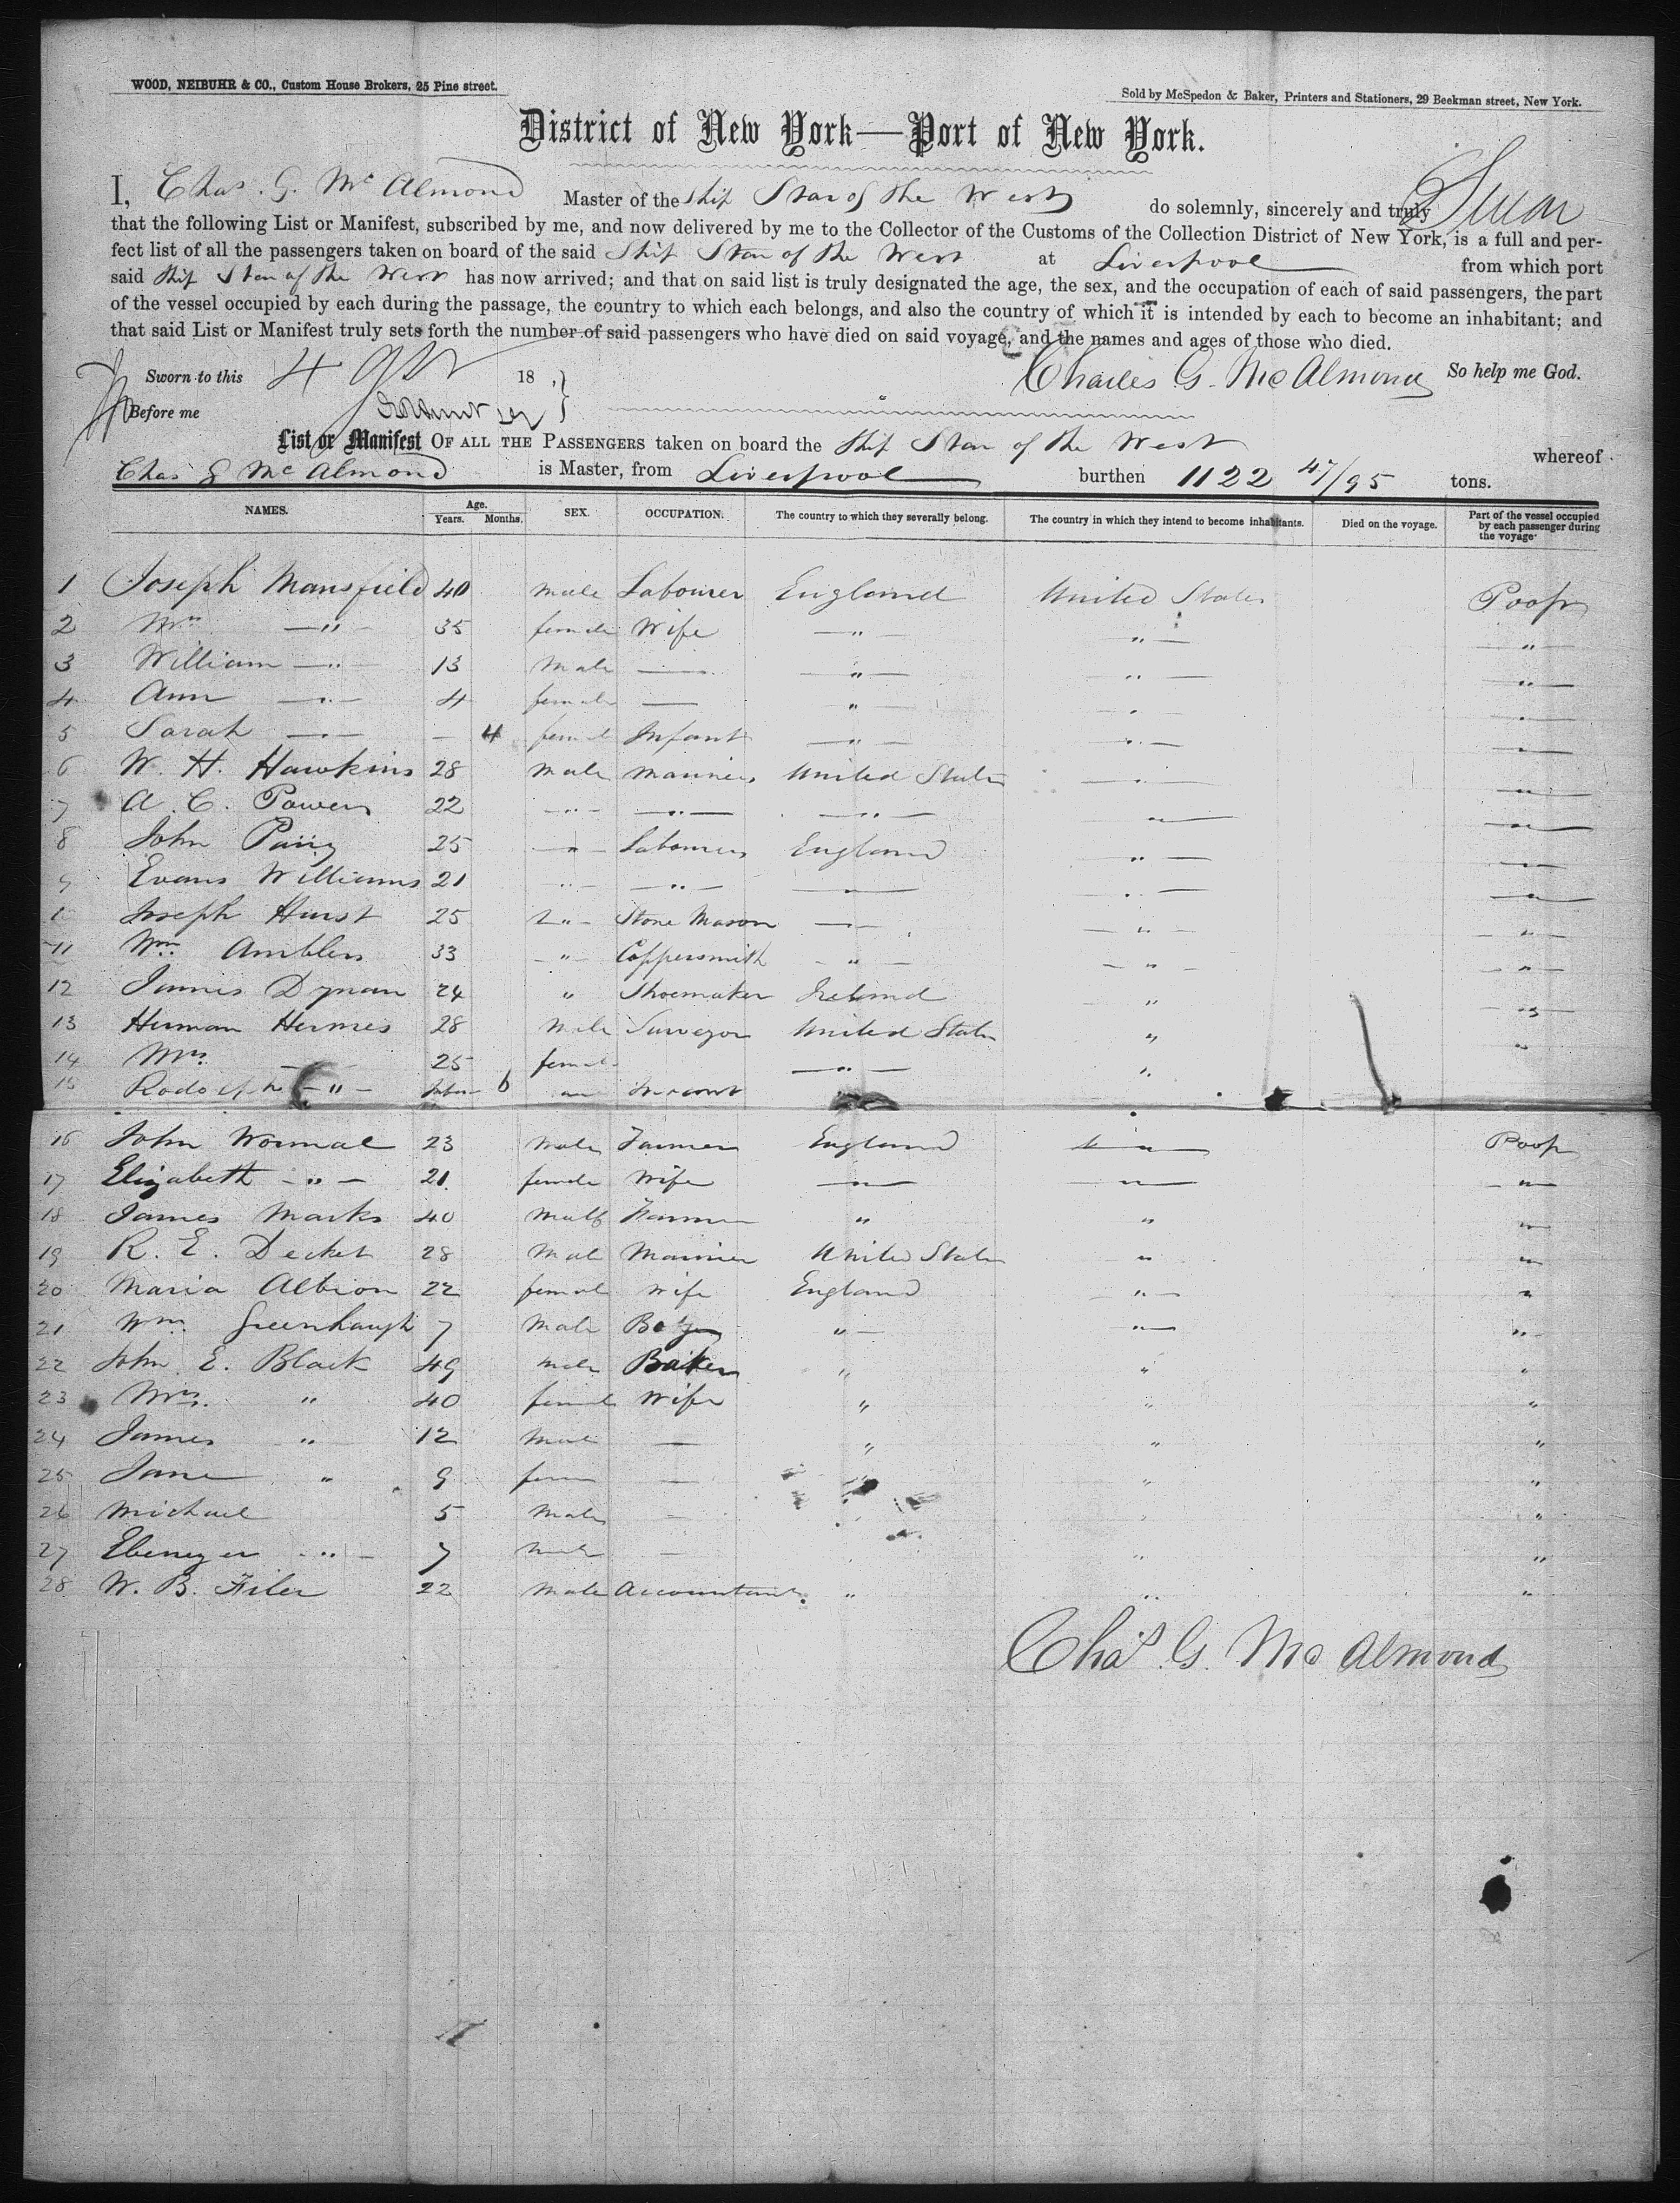 WOOD, NEIBUHR & CO., Custom House Brokers, 25 Pine street.
Sold by McSpedon & Baker, Printers and Stationers, 29 Beekman street, New York.
District of New York—Port of New York.
I, Chas. G. McAlmond Master of the Ship Star of the West do solemnly, sincerely and truly Swear
that the following List or Manifest, subscribed by me, and now delivered by me to the Collector of the Customs of the Collection District of New York, is a full and per-
fect list of all the passengers taken on board of the said Ship Star of the West at Liverpool from which port
said Ship Star of the West has now arrived; and that on said list is truly designated the age, the sex, and the occupation of each of said passengers, the part
of the vessel occupied by each during the passage, the country to which each belongs, and also the country of which it is intended by each to become an inhabitant; and
that said List or Manifest truly sets forth the number of said passengers who have died on said voyage, and the names and ages of those who died.
Sworn to this 4 18 , } Charles G. McAlmond So help me God.
Before me
List or Manifest OF ALL THE PASSENGERS taken on board the Ship Star of the West whereof
Chas G McAlmond is Master, from Liverpool burthen 1122 47/95 tons.
NAMES. Age. Years. Months. SEX. OCCUPATION. The country to which they severally belong. The country in which they intend to become inhabitants. Died on the voyage. Part of the vessel occupied by each passenger during the voyage
1 Joseph Mansfield 40 male Labourer England United States Poop
2 Mrs — " — 35 female Wife — " — — " — — " —
3 William — " — 13 Male — — " — " — " —
4 Ann — " — 4 female — " — " — " —
5 Sarah — " — — 4 female Infant — " — " — " —
6 W. H. Hawkins 28 Male Mariner United States — " — — " —
7 A. C. Powers 22 — " — — " — — " — — " — — " —
8 John Parry 25 — " — Labourer England " — — " —
9 Evans Williams 21 — " — — " — — " — " — — " —
10 Joseph Hurst 25 " — Stone Mason — " — — " — — " —
11 Wm. Ambler 33 — " — Coppersmith — " — — " — — " —
12 James Dynan 24 " Shoemaker Ireland " — " —
13 Herman Hermes 28 Male Surveyor United States " "
14 Mrs. 25 female — " — "
15 Rodolph — " — 6
16 John Wormal 23 Male Farmer England " — Poop
17 Elizabeth — " — 21 female Wife — " — — " — — " —
18 James Marks 40 Male Farmer " " "
19 R. E. Decket 28 Male Mariner United States " "
20 Maria Albion 22 female Wife England " — "
21 Wm. Greenhaugh 7 Male Boy " — " — " —
22 John E. Black 49 Male Baker " " "
23 Mrs. " 40 female Wife " " "
24 James " 12 Male — " " "
25 Jane " 9 fem — " " "
26 Michael 5 Male — " " "
27 Ebenezer — " — 7 Male — " " "
28 W. B. Filer 22 Male Accountant " " "
Chas. G. McAlmond